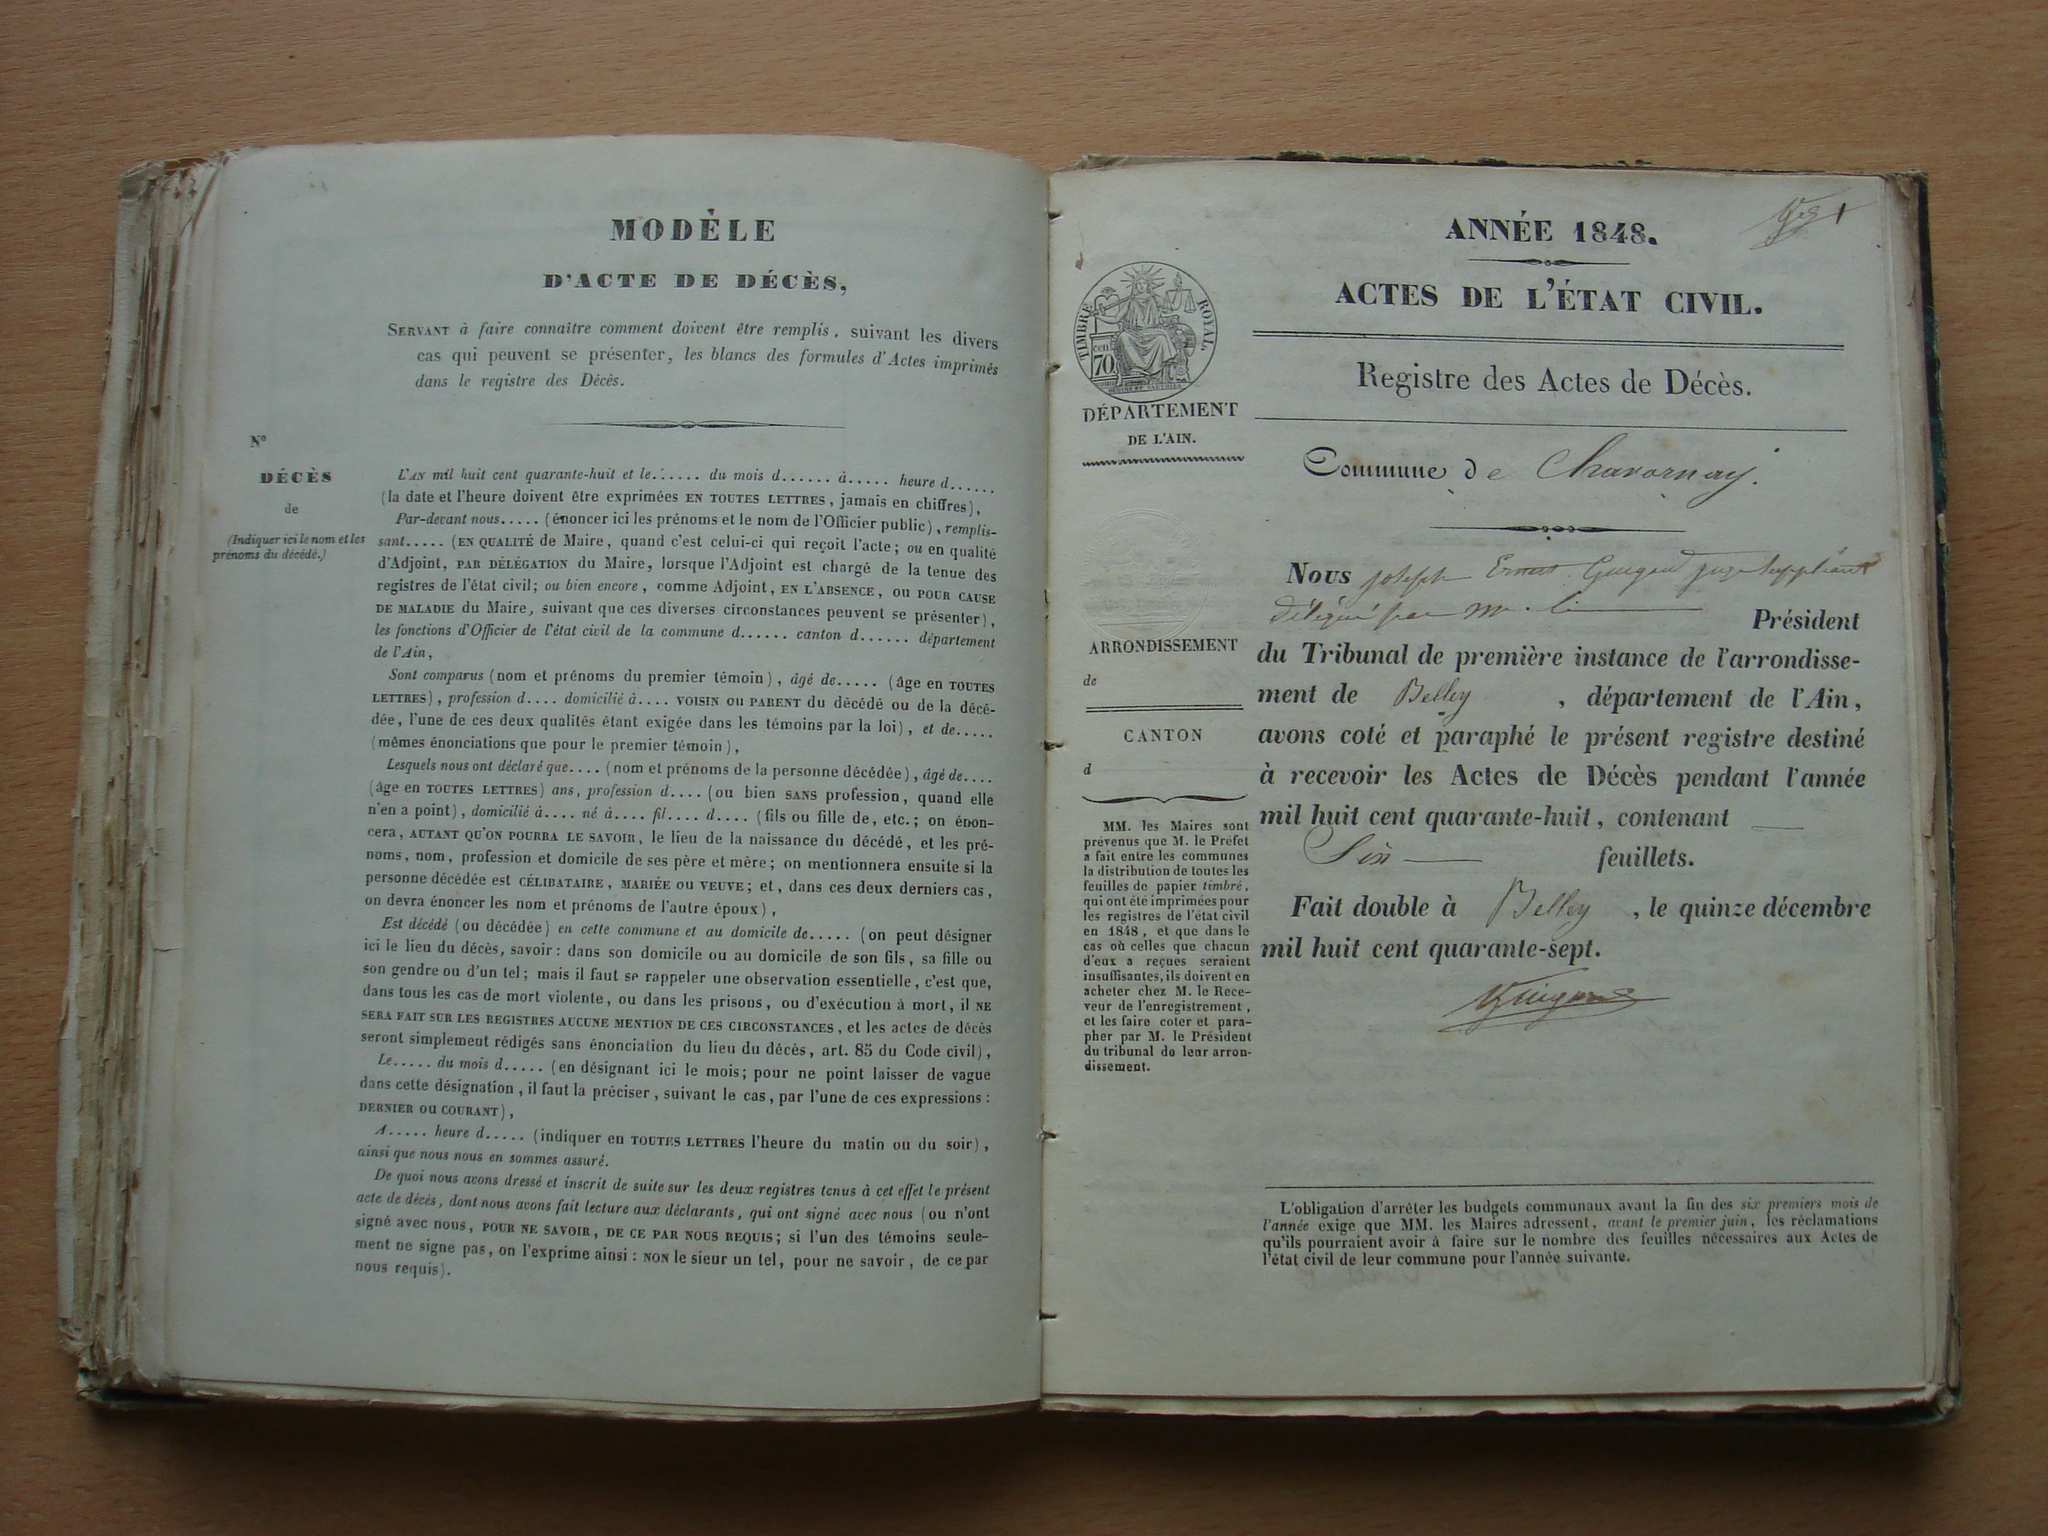 MODÈLE
D'ACTE DE DÉCÈS,
SERVANT à faire connaître comment doivent être remplis, suivant les divers
cas qui peuvent se présenter, les blancs des formules d'Actes imprimés
dans le registre des Décès.
N°
DÉCÈS
de
(Indiquer ici le nom et les
prénoms du décédé.)
L'AN mil huit cent quarante-huit et le...... du mois d...... à..... heure d......
(la date et l'heure doivent être exprimées EN TOUTES LETTRES, jamais en chiffres),
Par-devant nous..... (énoncer ici les prénoms et le nom de l'Officier public), remplis-
sant..... (EN QUALITÉ de Maire, quand c'est celui-ci qui reçoit l'acte; ou en qualité
d'Adjoint, PAR DÉLÉGATION du Maire, lorsque l'Adjoint est chargé de la tenue des
registres de l'état civil; ou bien encore, comme Adjoint, EN L'ABSENCE, OU POUR CAUSE
DE MALADIE du Maire, suivant que ces diverses circonstances peuvent se présenter),
les fonctions d'Officier de l'état civil de la commune d...... canton d...... département
de l'Ain,
Sont comparus (nom et prénoms du premier témoin), âgé de..... (âge en TOUTES
LETTRES), profession d.... domicilié à.... VOISIN OU PARENT du décédé ou de la décé-
dée, l'une de ces deux qualités étant exigée dans les témoins par la loi), et de.....
(mêmes énonciations que pour le premier témoin),
Lesquels nous ont déclaré que.... (nom et prénoms de la personne décédée), âgé de....
(âge en TOUTES LETTRES) ans, profession d.... (ou bien SANS profession, quand elle
n'en a point), domicilié à.... né à.... fil.... d.... (fils ou fille de, etc.; on énon-
cera, AUTANT QU'ON POURRA LE SAVOIR, le lieu de la naissance du décédé, et les pré-
noms, nom, profession et domicile de ses père et mère; on mentionnera ensuite si la
personne décédée est CÉLIBATAIRE, MARIÉE OU VEUVE; et, dans ces deux derniers cas,
on devra énoncer les nom et prénoms de l'autre époux),
Est décédé (ou décédée) en cette commune et au domicile de..... (on peut désigner
ici le lieu du décès, savoir: dans son domicile ou au domicile de son fils, sa fille ou
son gendre ou d'un tel; mais il faut se rappeler une observation essentielle, c'est que,
dans tous les cas de mort violente, ou dans les prisons, ou d'exécution à mort, il NE
SERA FAIT SUR LES REGISTRES AUCUNE MENTION DE CES CIRCONSTANCES, et les actes de décès
seront simplement rédigés sans énonciation du lieu du décès, art. 85 du Code civil),
Le..... du mois d..... (en désignant ici le mois; pour ne point laisser de vague
dans cette désignation, il faut la préciser, suivant le cas, par l'une de ces expressions:
DERNIER OU COURANT),
A..... heure d..... (indiquer en TOUTES LETTRES l'heure du matin ou du soir),
ainsi que nous nous en sommes assuré.
De quoi nous avons dressé et inscrit de suite sur les deux registres tenus à cet effet le présent
acte de décès, dont nous avons fait lecture aux déclarants, qui ont signé avec nous (ou n'ont
signé avec nous, POUR NE SAVOIR, DE CE PAR NOUS REQUIS; si l'un des témoins seule-
ment ne signe pas, on l'exprime ainsi: NON le sieur un tel, pour ne savoir, de ce par
nous requis).
1
ANNÉE 1848.
ACTES DE L'ÉTAT CIVIL.
Registre des Actes de Décès.
TIMBRE ROYAL.
cen
70
DÉPARTEMENT
DE L'AIN.
ARRONDISSEMENT
de
CANTON
d
MM. les Maires sont
prévenus que M. le Préfet
a fait entre les communes
la distribution de toutes les
feuilles de papier timbré,
qui ont été imprimées pour
les registres de l'état civil
en 1848, et que dans le
cas où celles que chacun
d'eux a reçues seraient
insuffisantes, ils doivent en
acheter chez M. le Rece-
veur de l'enregistrement,
et les faire coter et para-
pher par M. le Président
du tribunal de leur arron-
dissement.
Commune de Chavornay.
Nous joseph Ernest Guigard juge suppléant
délégué par mr. le Président
du Tribunal de première instance de l'arrondisse-
ment de Belley, département de l'Ain,
avons coté et paraphé le présent registre destiné
à recevoir les Actes de Décès pendant l'année
mil huit cent quarante-huit, contenant
Six feuillets.
Fait double à Belley, le quinze décembre
mil huit cent quarante-sept.
L'obligation d'arrêter les budgets communaux avant la fin des six premiers mois de
l'année exige que MM. les Maires adressent, avant le premier juin, les réclamations
qu'ils pourraient avoir à faire sur le nombre des feuilles nécessaires aux Actes de
l'état civil de leur commune pour l'année suivante.